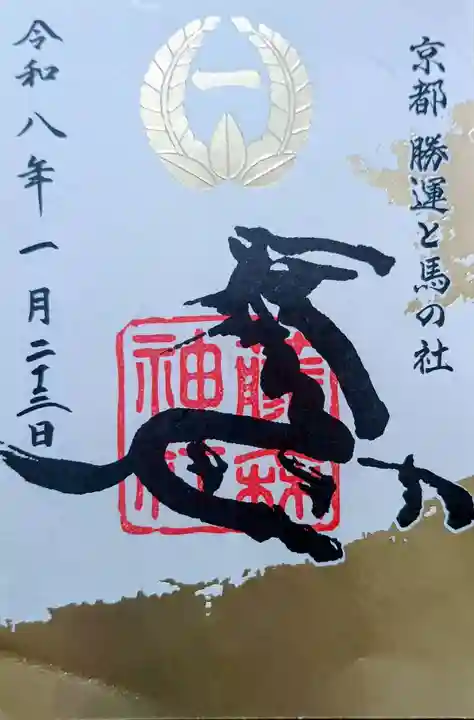 京都 勝運と馬の社
一
藤森
神社
令和八年一月二十三日